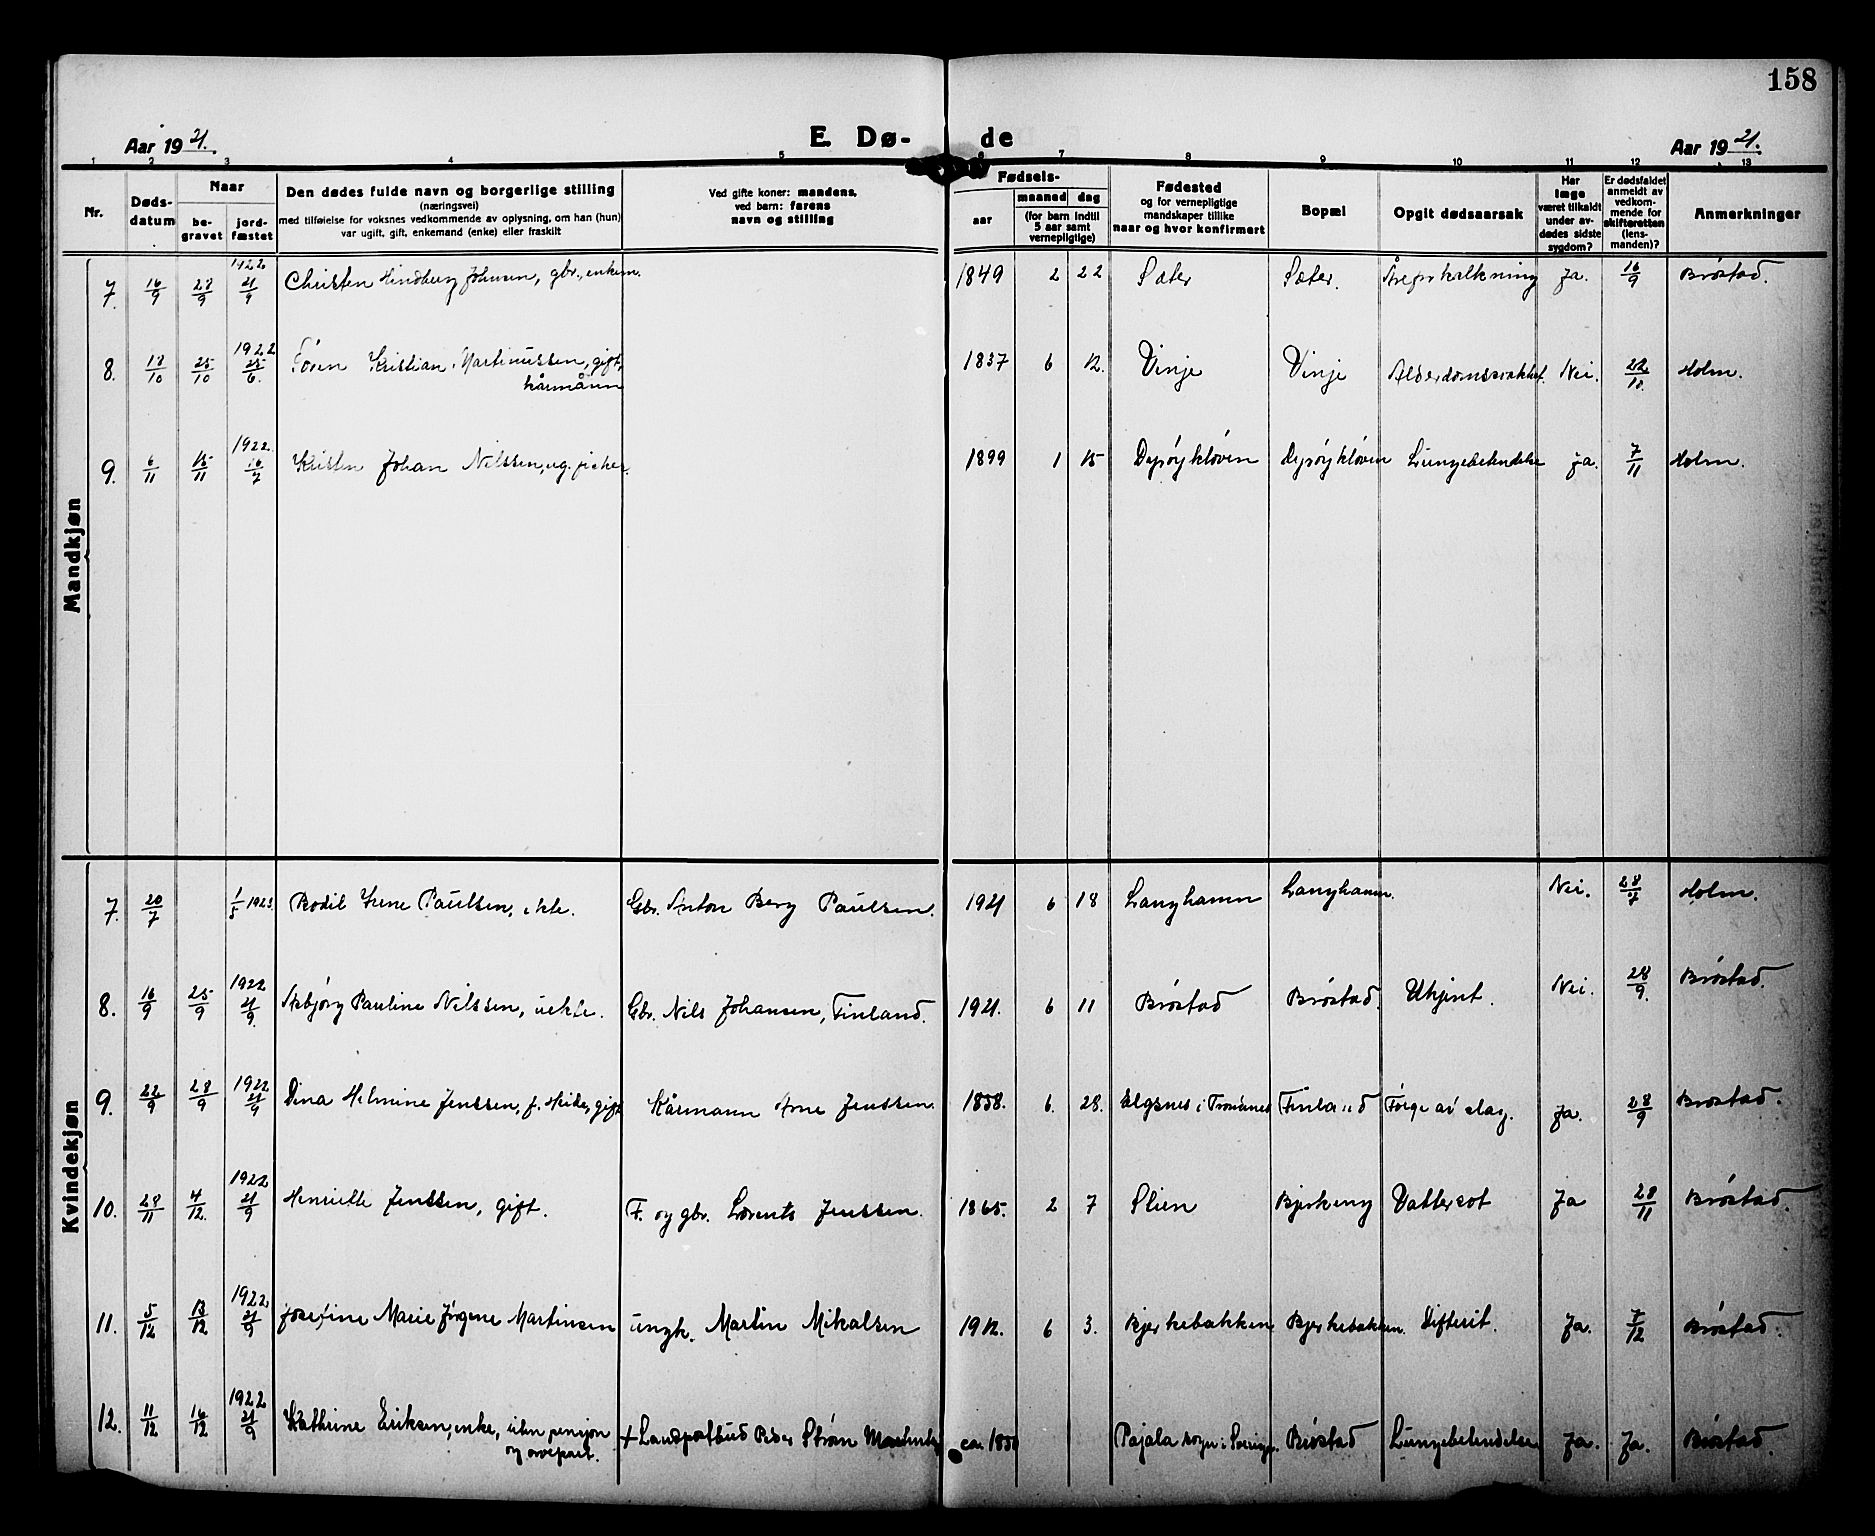 158
Aar 1921.
E. Dø-
de
Aar 1921.
1 2 3 4 5 6 7 8 9 10 11 12 13
Nr.
Døds-
datum
Naar
be-
gravet
jord-
fæstet
Den dødes fulde navn og borgerlige stilling
(næringsvei)
med tilføielse for voksnes vedkommende av oplysning, om han (hun)
var ugift, gift, enkemand (enke) eller fraskilt
Ved gifte koner: mandens,
ved barn: farens
navn og stilling
Fødsels-
aar
maaned dag
(for barn indtil
5 aar samt
vernepligtige)
Fødested
og for vernepligtige
mandskaper tillike
naar og hvor konfirmert
Bopæl
Opgit dødsaarsak
Har
læge
været tilkaldt
under av-
dødes sidste
sygdom?
Er dødsfaldet
anmeldt av
vedkom-
mende for
skifteretten
(lens-
manden)?
Anmerkninger
Mandkjøn
7. 16/9 28/9 1922 21/9 Christen Hindberg Johnsen, gbr., enkem. 1849 2 22 Sæter Sæter. Åreforkalkning Ja. 16/9 Brøstad.
8. 18/10 25/10 1922 25/6. Kristian Martinussen, gift,
kårmann 1837 6 12. Vinje Vinje Alderdomssvakhet. Nei. 22/10. Holm.
9. 6/11 15/11 1922. 16/7 Kristen Johan Nilssen, ug. fisker. 1899 1 15 Dyrøykløven Dyrøykløven Lungebetendelse Ja. 7/11 Holm.
Kvindekjøn
7. 20/7 1/5 1923. Bodil Irene Paulsen, ekte. Gbr. Anton Berg Paulsen. 1921 6 18 Langhamn Langhamn. Nei. 28/7 Holm.
8. 16/9 25/9 1922 21/9. Asbjørg Pauline Nilssen, uekte. Gbr. Nils Johansen, Finland. 1921. 6 11 Brøstad Brøstad. Ukjent. Nei. 28/9. Brøstad.
9. 22/9 28/9 1922 21/9 Dina Helmine Jenssen, f. Heide, gift Kårmann Arne Jenssen. 1858. 6. 28. Elgsnes i Trondenes Finland Følge av slag. Ja. 28/9 Brøstad.
10. 28/11 4/12. 1922 21/9 Henriette Jenssen, gift. F. og gbr. Lorents Jenssen. 1865. 2 7 Slien Bjerkeng Vattersot Ja 28/11 Brøstad.
11. 5/12 13/12 1922 21/9 Josefine Marie Jørgene Martinsen ungk. Martin Mikalsen 1912. 6 3. Bjerkebakken Bjerkebakken. Difterit. Ja. 7/12 Brøstad.
12. 11/12 16/12 1922 21/9 Kathrine Eriksen, enke, uten pensjon
og overpart. + Landpostbud Peder Strøm ca. 1850 Pajala sogn i Sverige. Brøstad Lungebetendelse Ja. Ja. Brøstad.